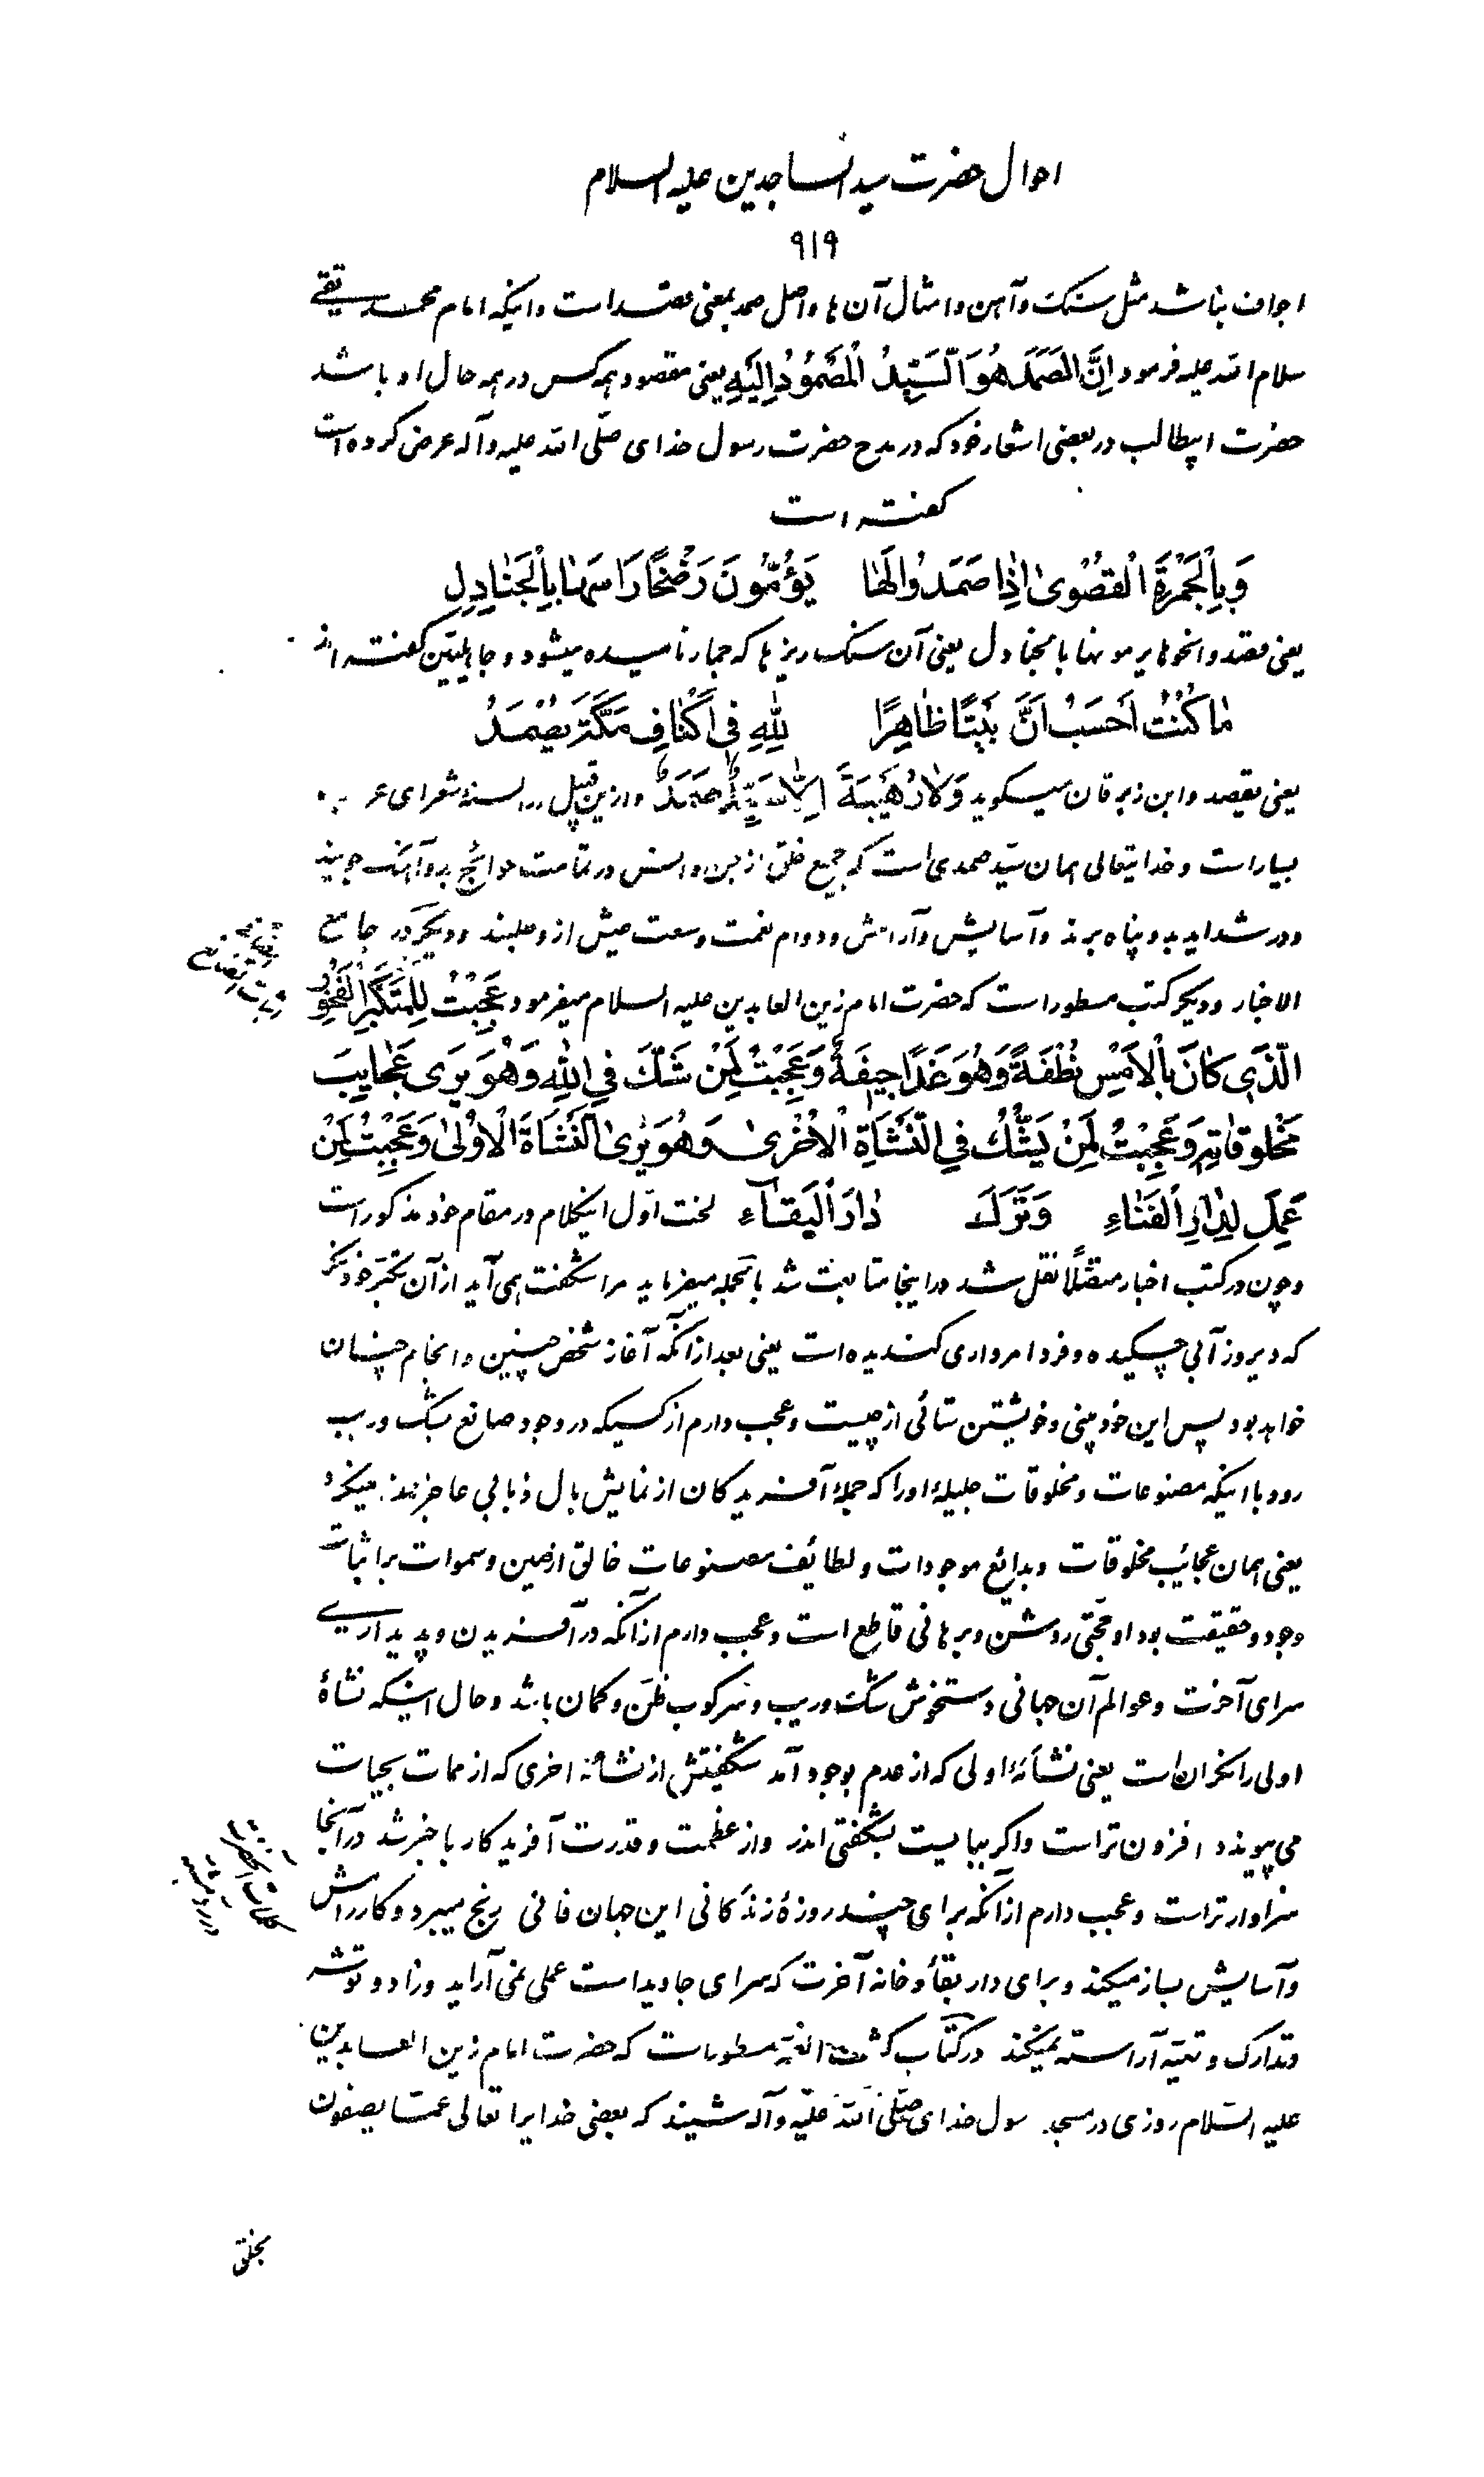 احوال حضرت سید الساجدین علیه السلام
۹۱۹
اجوف نباشد مثل سنک و آهن و امثال آن ها و اصل صمد بمعنی قصد است و اینکه امام محمد تقی
سلام الله علیه فرمود اِنَّ الصَمَدَ هُوَ السَّیِّدُ الْمَصْمُودُ اِلَیْهِ یعنی مقصود همه کس در همه حال او باشد
حضرت ابیطالب در بعضی اشعار خود که در مدح حضرت رسول خدای صلی الله علیه و آله عرض کرده است
کفته است
وَبِالْجَمْرَةِ الْقُصْوٰی اِذٰا صَمَدُوا لَهٰا یَؤُمُّونَ رَضْخًا رَاسَهٰا بِالْجَنٰادِلِ
یعنی قصدوا نحوها یرمونها بالجنادل یعنی آن سنک ریزها که جمار نامیده میشود و جاهلیتین کفته اند
مٰا کُنْتُ اَحْسَبُ اَنَّ بَیْتًا ظٰاهِرًا لِلّٰهِ فِی اَکْنٰافِ مَکَّةَ یُصْمَدُ
یعنی یقصد و ابن زبرقان میکوید وَلاٰ رُهَیْبَةَ اِلاّٰ سَیِّدٌ صَمَدٌ و ازین قبیل در السنه شعرای عرب
بسیار است و خدایتعالی همان سید صمدی است که جمیع خلق از جن و انس در تمامت حوائج بدو آهنک جویند
و در شداید بدو پناه برند و آسایش و آرامش و دوام نعمت و سعت عیش از و طلبند و دیکر در جامع
الاخبار و دیکر کتب مسطور است که حضرت امام زین العابدین علیه السلام میفرمود عَجِبْتُ لِلْمُتَکَبِّرِ الْفَخُورِ
الَّذی کٰانَ بِالْاَمْسِ نُطْفَةً وَهُوَ غَدًا جیفَةٌ وَعَجِبْتُ لِمَنْ شَکَّ فِی اللّٰهِ وَهُوَ یَرٰی عَجٰایِبَ
مَخْلوقٰاتِهِ وَعَجِبْتُ لِمَنْ یَشُکُّ فِی النَّشْاَةِ الْاُخْرٰی وَهُوَ یَرَی النَّشْاَةَ الْاُوْلٰی وَعَجِبْتُ لِمَنْ
عَمِلَ لِدٰارِ الْفَنٰاءِ وَتَرَکَ دٰارَ الْبَقٰاءِ لخت اول اینکلام در مقام خود مذکور است
و چون در کتب اخبار مفصلاً نقل شد در اینجا متابعت شد بالجمله میفرماید مرا شکفت همی آید از آن متکبر خودنکر
که دیروز آبی چکیده و فردا مرداری کندیده است یعنی بعد از آنکه آغاز شخص چنین و انجام چنان
خواهد بود پس این خودبینی و خویشتن ستائی از چیست و عجب دارم از کسیکه در وجود صانع بشک و ریب
رود با اینکه مصنوعات و مخلوقات جلیله او را که جمله آفریدکان از نمایش بال ذبابی عاجزند مینکرد
یعنی همان عجائب مخلوقات و بدایع موجودات و لطائف مصنوعات خالق ارضین و سموات بر اثبات
وجود و حقیقت بود او حجتی روشن و برهانی قاطع است و عجب دارم از آنکه در آفریدن و پدیداری
سرای آخرت و عوالم آن جهانی دستخوش شک و ریب و سرکوب ظن و کمان باشد و حال اینکه نشاة
اولی را نکران است یعنی نشأة اولی که از عدم بوجود آمد شکفتیش از نشأة اخری که از ممات بحیات
می پیوندد افزون تر است و اکر ببایست بشکفتی اندر و از عظمت و قدرت آفریدکار باخبر شد در آنجا
سزاوارتر است و عجب دارم از آنکه برای چند روزه زندکانی این جهان فانی رنج میبرد و کار رامش
و آسایش بساز میکند و برای دار بقأ و خانه آخرت که سرای جاوید است عملی نمی آراید و زاد و توشه
و تدارک و تهیه آراسته نمیکند در کتاب کشف الغمه مسطور است که حضرت امام زین العابدین
علیه السلام روزی در مسجد رسول خدای صلی الله علیه و آله شنیند که بعضی خدایرا تعالی عما یصفون
بخلق